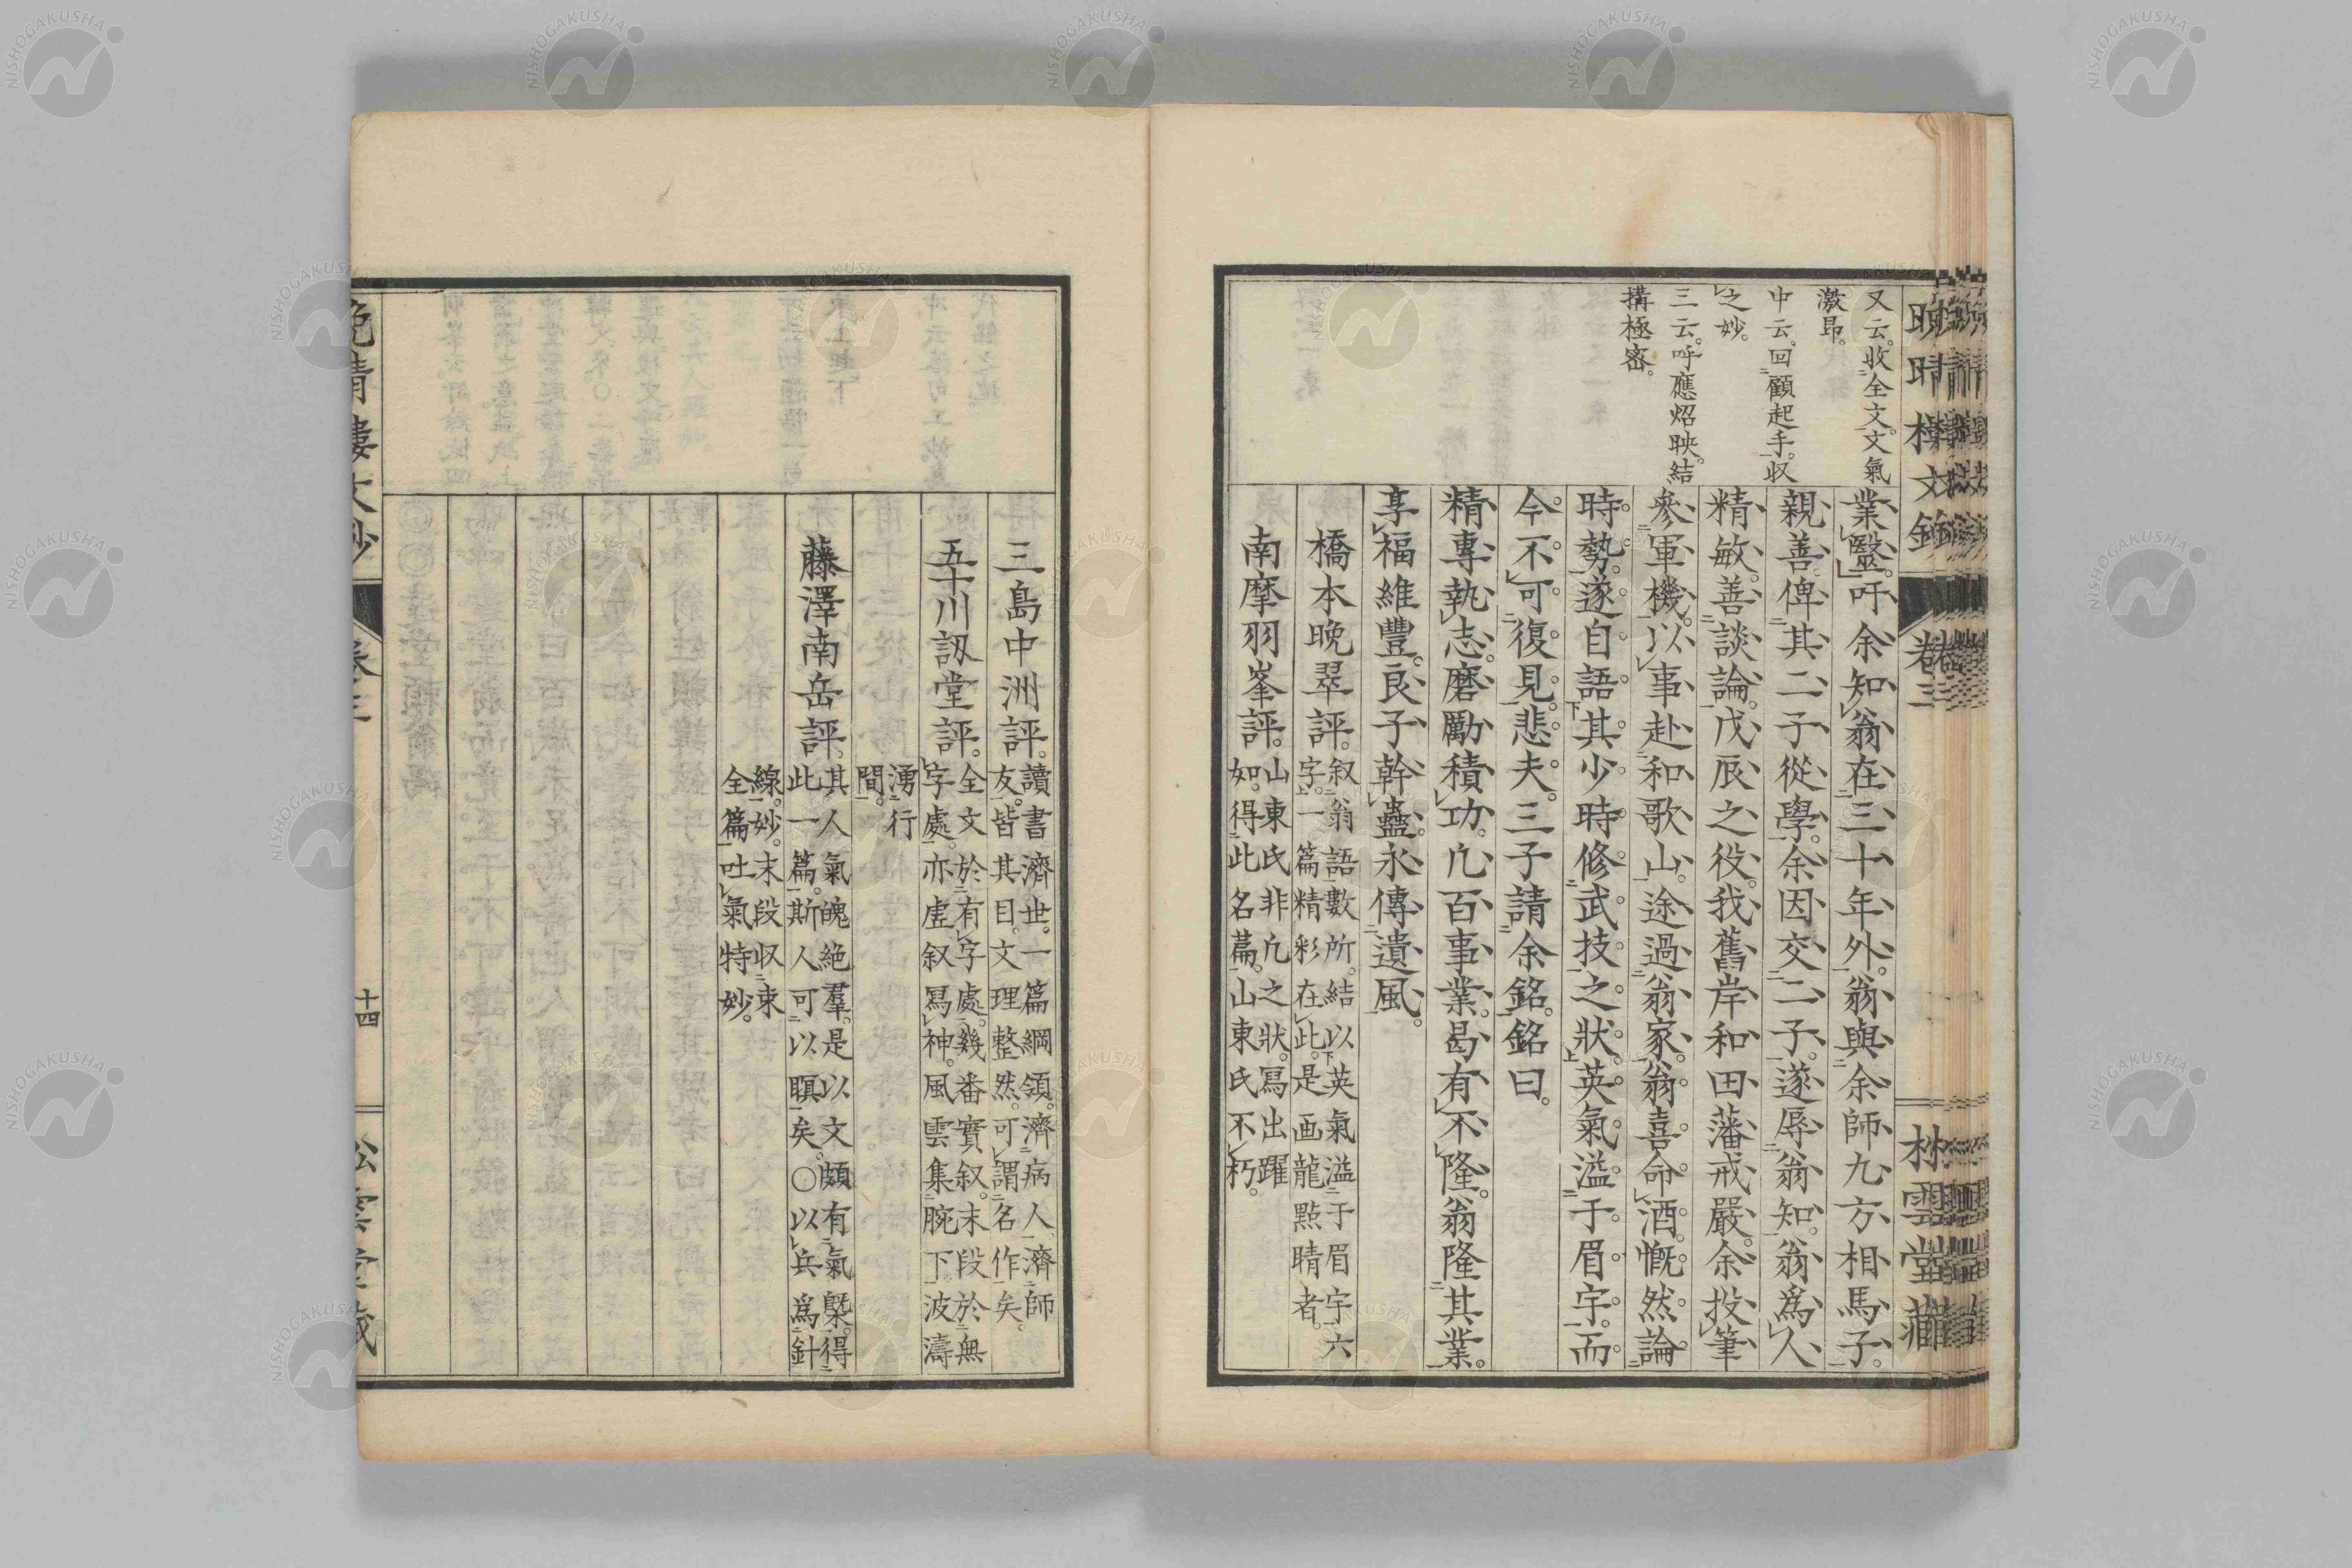 晚晴樓文鈔
卷三
松雲堂藏
又云。收全文。文氣
激昂。
中云。回顧起手。收
之妙。
三云。呼應炤映。結
搆極密。
業醫。吁余知翁在三十年外。翁與余師九方相馬子。
親善。俾其二子從學。余因交二子。遂辱翁知。翁爲人
精敏。善談論。戊辰之役。我舊岸和田藩戒嚴。余投筆
參軍機。以事赴和歌山。途過翁家。翁喜命酒。慨然論
時勢。遂自語其少時修武技之狀。英氣溢于眉宇。而
今不可復見。悲夫。三子請余銘。銘曰。
精專執志。磨勵積功。凢百事業。曷有不隆。翁隆其業。
享福維豐。良子幹蠱。永傳遺風。
橋本晚翠評。叙翁語數所。結以英氣溢于眉宇六
字。一篇精彩在此。是画龍點睛者。
南摩羽峯評。山東氏非凢之狀。冩出躍
如。得此名篇。山東氏不朽。
三島中洲評。讀書濟世。一篇綱領。濟病人濟師
友。皆其目。文理整然。可謂名作矣。
五十川訒堂評。全文於有字處。幾番實叙。末段於無
字處。亦虛叙冩神。風雲集腕下。波濤
湧行
間。
藤澤南岳評。其人氣魄絶羣。是以文頗有氣槩。得
此一篇。斯人可以瞑矣。〇以兵爲針
線。妙。末段収束
全篇。吐氣特妙。
晚晴樓文鈔
卷三
十四
松雲堂藏